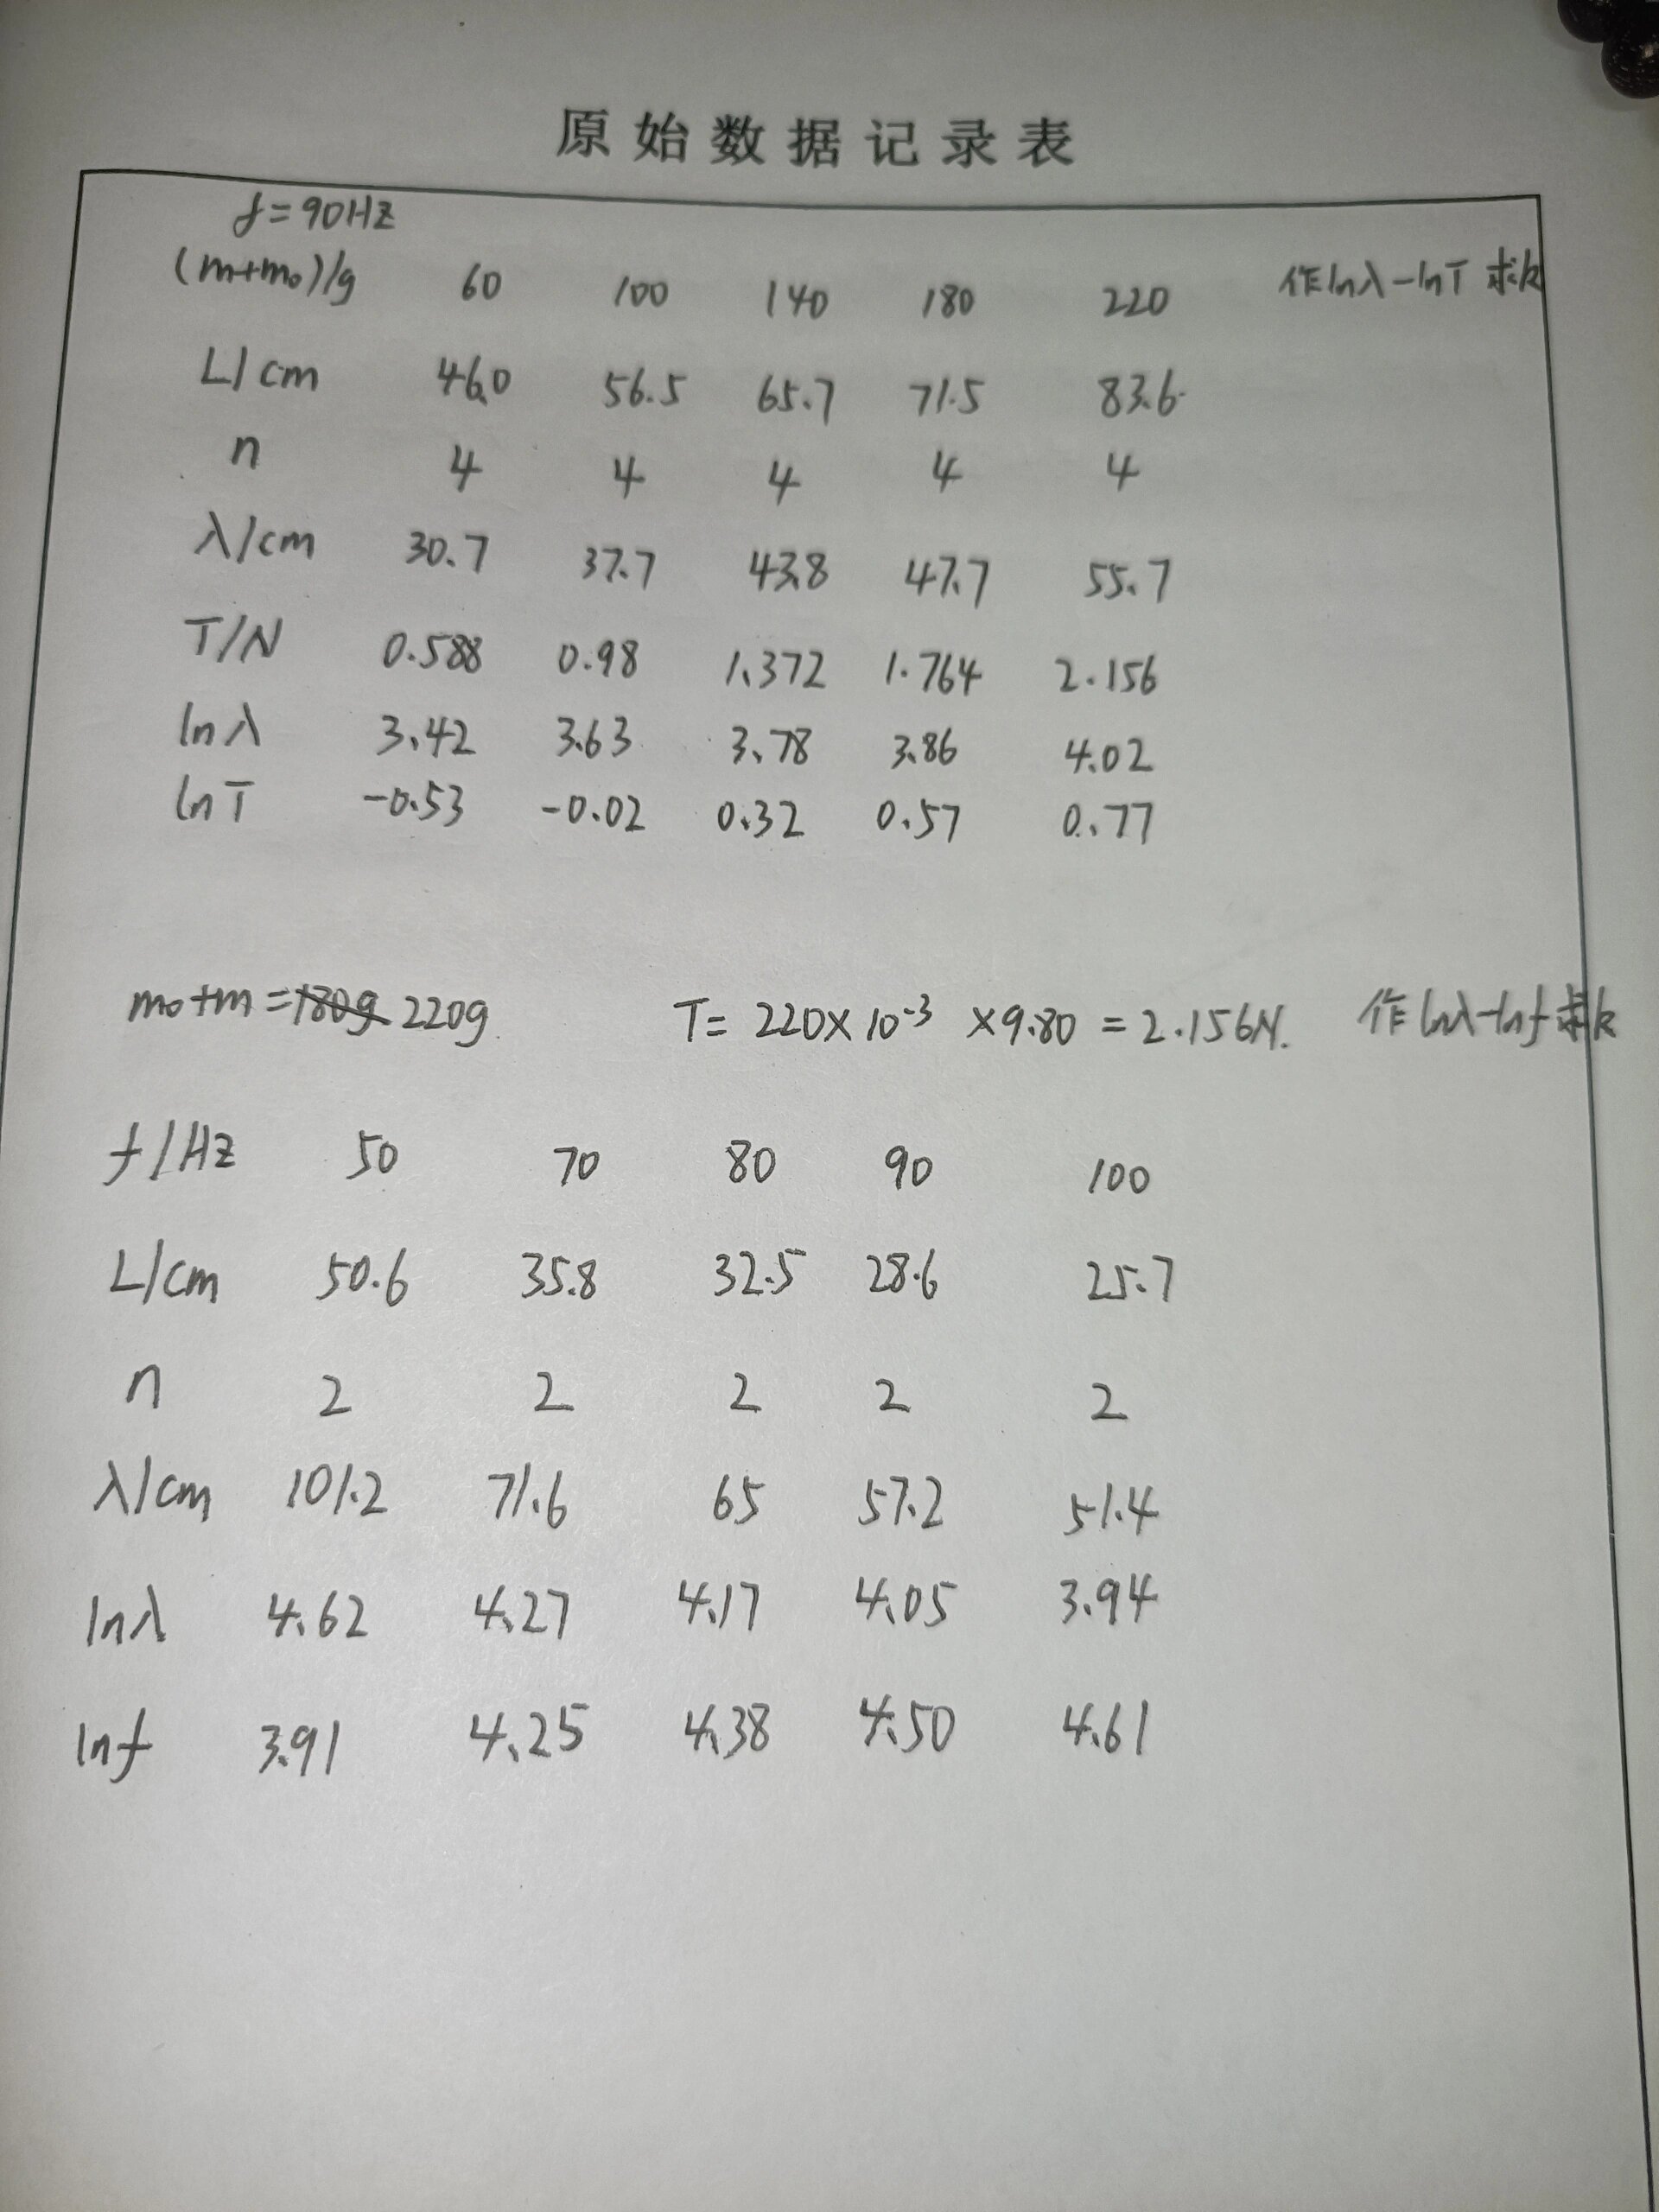 原始数据记录表
f=90Hz
(m+m₀)/g 60 100 140 180 220 作lnλ-lnT 求k
L/cm 46.0 56.5 65.7 71.5 83.6
n 4 4 4 4 4
λ/cm 30.7 37.7 43.8 47.7 55.7
T/N 0.588 0.98 1.372 1.764 2.156
lnλ 3.42 3.63 3.78 3.86 4.02
lnT -0.53 -0.02 0.32 0.57 0.77
m₀+m=180g 220g T=220×10⁻³×9.80=2.156N. 作lnλ-lnf求k
f/Hz 50 70 80 90 100
L/cm 50.6 35.8 32.5 28.6 25.7
n 2 2 2 2 2
λ/cm 101.2 71.6 65 57.2 51.4
lnλ 4.62 4.27 4.17 4.05 3.94
lnf 3.91 4.25 4.38 4.50 4.61